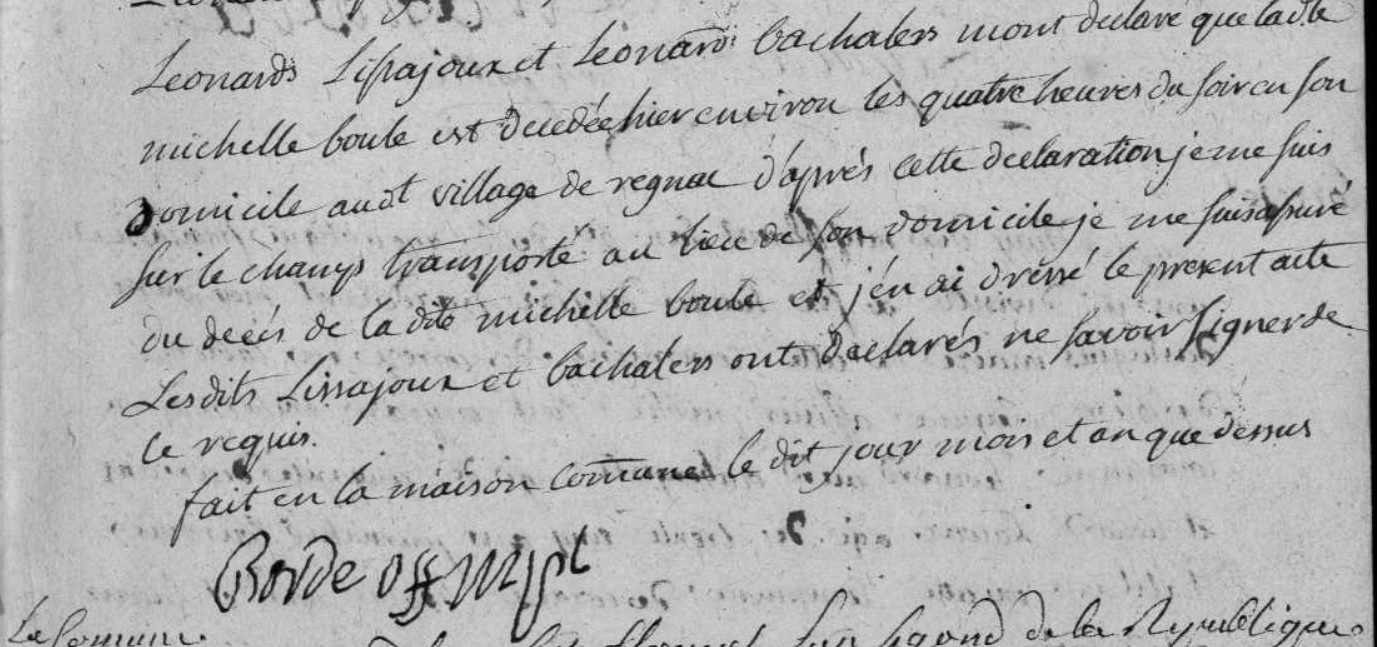 Leonards Lissajoux et Leonard bachalers mont declaré que ladte
michelle boule est decedée hier environ les quatre heures du soir en son
domicile audt village de regnac d'aprés cette declaration je me suis
sur le champs transporté au lieu de son domicile je me suis assuré
du decés de la dte michelle boule et j'en ai dressé le present acte
Lesdits Lissajoux et bachalers ont declarés ne savoir signer de
ce requis.
fait en la maison comune le dit jour mois et an que dessus
Borde off mpl
La Comune.
floreal l'an segond de la Republique